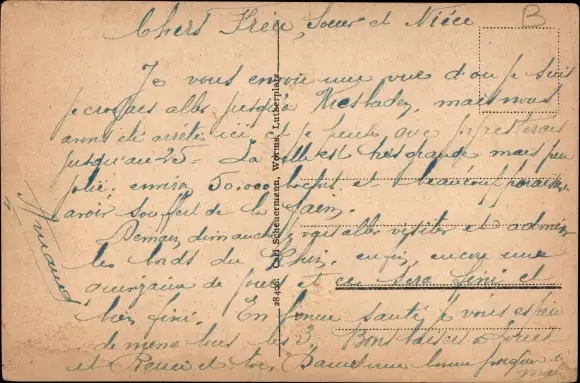 B
Chers Frère, Soeur et Nièce
Je vous envoie une vue d'ou je suis
je croyais aller jusqu'à Wiesbaden, mais nous
avons été arrêtés ici, et je pense que je resterais
jusqu'au 25 - La ville est très grande mais peu
jolie. environ 50.000 boches et beaucoup paraissent
avoir souffert de la faim.
Demain dimanche, vais aller visiter et admirer
les bords du Rhin. enfin, encore une
quinzaine de jours et ce sera fini et
bien fini. En bonne santé, je vous espère
de même tous les 3. Bons baisers à
et Renée et toi,
Armand
28420. Carl Scheuermann, Worms, Lutherplatz